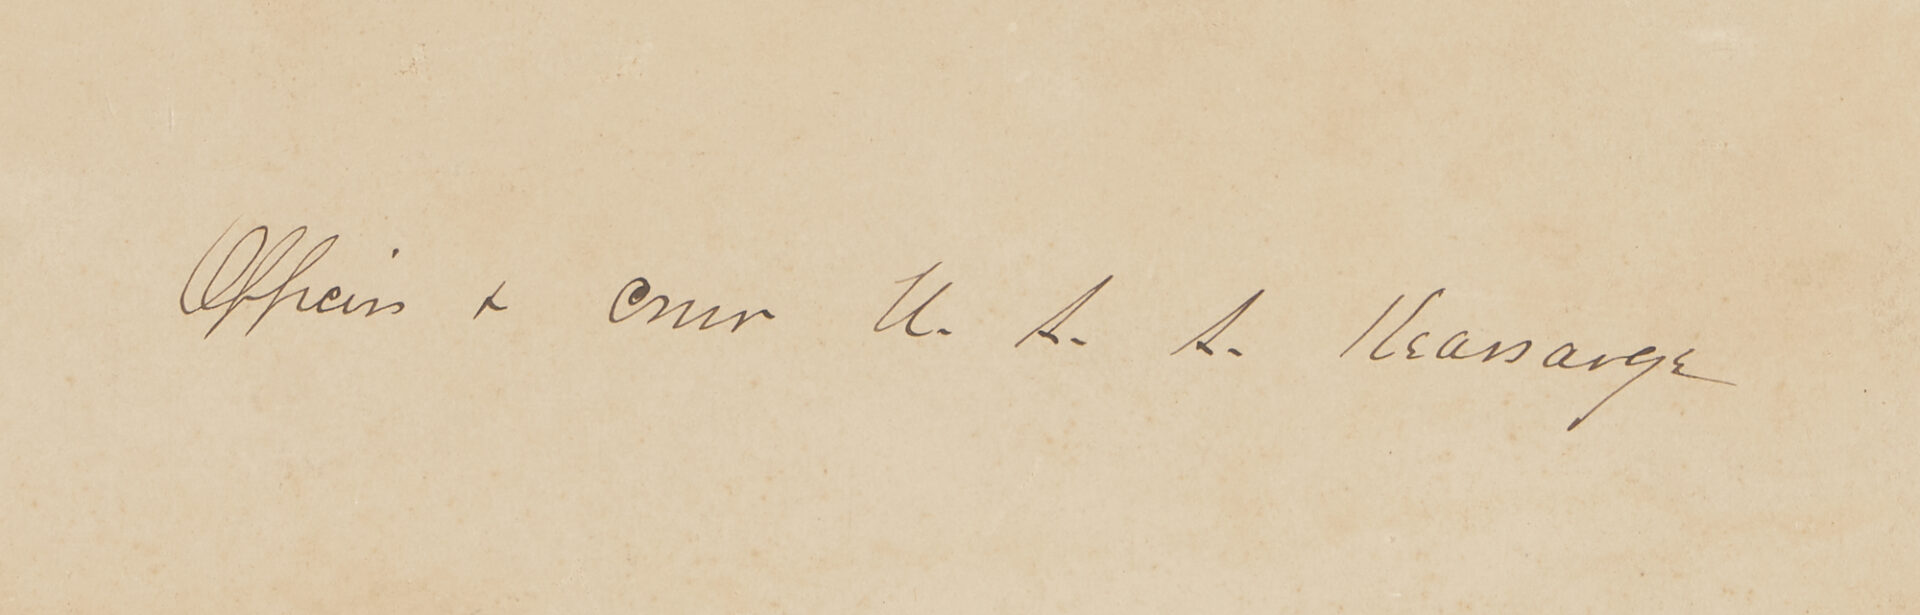 Officers & crew U. S. S. Kearsarge